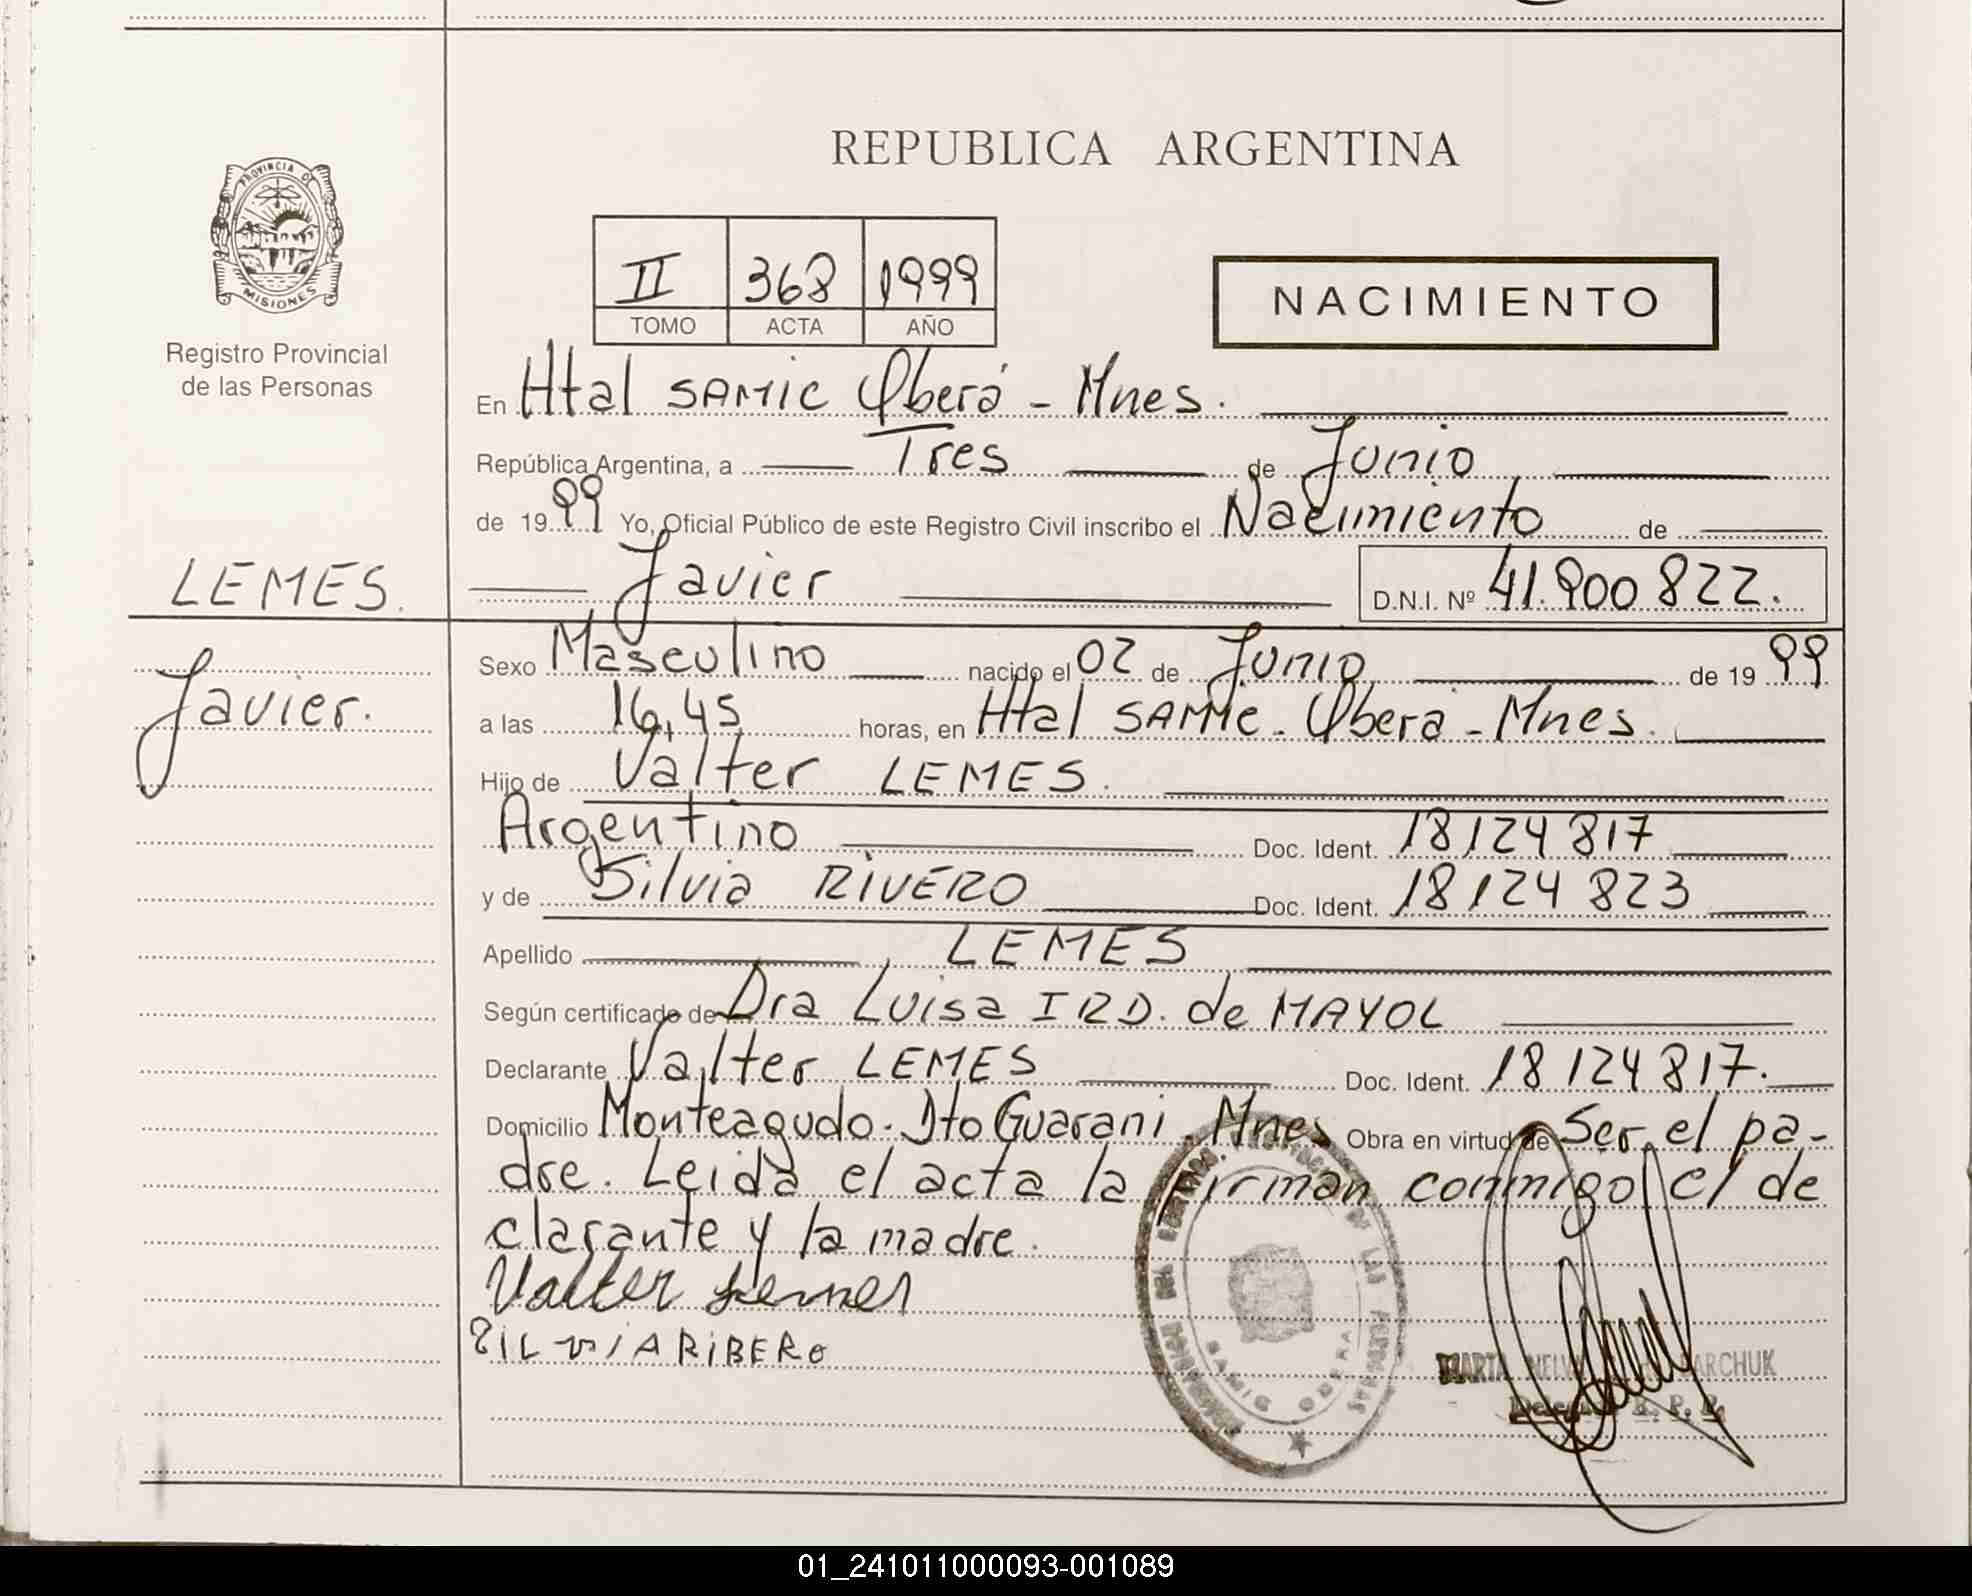 REPUBLICA ARGENTINA
PROVINCIA D
MISIONES
Registro Provincial
de las Personas
II 368 1999
TOMO ACTA AÑO
NACIMIENTO
En Htal SAMIC Oberá - Mnes.
República Argentina, a Tres de Junio
de 1999 Yo, Oficial Público de este Registro Civil inscribo el Nacimiento de
LEMES.
Javier D.N.I. Nº 41.900822.
Javier.
Sexo Masculino nacido el 02 de Junio de 1999
a las 16,45 horas, en Htal SAMIC - Oberá - Mnes.
Hijo de Valter LEMES.
Argentino Doc. Ident. 18124817
y de Silvia RIVERO Doc. Ident. 18124823
Apellido LEMES
Según certificado de Dra Luisa IRD. de MAYOL
Declarante Valter LEMES Doc. Ident. 18124817.
Domicilio Monteagudo - Dto Guarani - Mnes Obra en virtud de Ser el pa-
dre. Leida el acta la firman conmigo el de
clarante y la madre.
Valter Lemes
SILVIA RIBERO
DE LAS PERSONAS
SAMIC OBERA
MARTA ARCHUK
R. P. P.
01_241011000093-001089